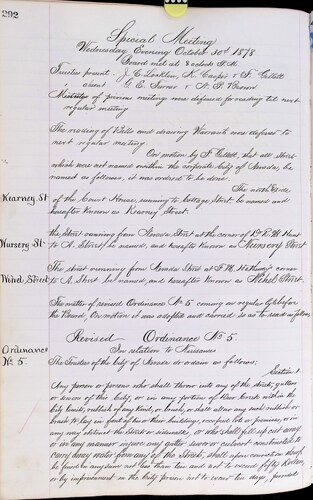 292
Special Meeting
Wednesday Evening October 30th 1878
Board met at 8 oclock P.M.
Trustees present, J. C. K. Casper & F. Gillett
absent G. E. Turner & W. P.
Minutes of previous meetings was deferred for reading till next
regular meeting
The reading of Bills and drawing Warrants were deferred to
next regular meeting.
On motion by F. Gillett, that all Streets
which were not named within the corporate City of Nevada, be
named as follows, it was ordered to be done.
The north side
Kearney St
of the Court House, running to Cottage Street, be named and
hereafter Known as Kearney Street.
Nursery St
the Street running from Nevada Street at the corner of R. M. Hunt
to A. Street, be named, and hereafter Known as Nursery Street
Wehel Street
The street running from Nevada Street at F. M. corner
to A. Street be named, and hereafter Known as Wehel Street.
The matter of revised Ordinance No 5 coming on regularly before
the Board, On motion it was adopted and carried so as to read as follows
Ordinance
No 5.
Revised Ordinance No 5.
In relation to Nuisances
The Trustees of the City of Nevada do ordain as follows;
Section 1
Any person or persons who shall throw into any of the streets, gutters
or sewers of this City, or in any portion of Deer Creek within the
City limits, rubbish of any Kind, or brush, or shall allow any such rubbish or
brush to lay in front of his or their buildings, occupied lots or premises, or in
any way obstruct the streets or sidewalks, or who shall fill up, cut away
or in any manner injure any gutter sewer or culvert constructed to
carry away water from any of the streets, shall upon conviction thereof,
be fined in any sum not less than ten and not to exceed fifty dollars,
or by imprisonment in the City prison not to exceed ten days, provided